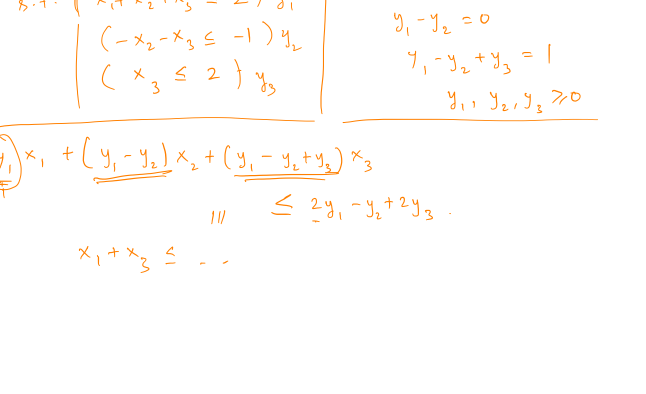 s.t. x₁ + x₂ + x₃ ≤ 2 ) y₁
( -x₂ - x₃ ≤ -1 ) y₂
( x₃ ≤ 2 ) y₃
y₁ - y₂ = 0
y₁ - y₂ + y₃ = 1
y₁, y₂, y₃ ≥ 0
y₁) x₁ + (y₁ - y₂) x₂ + (y₁ - y₂ + y₃) x₃
≤ 2y₁ - y₂ + 2y₃ .
x₁ + x₃ ≤ - -